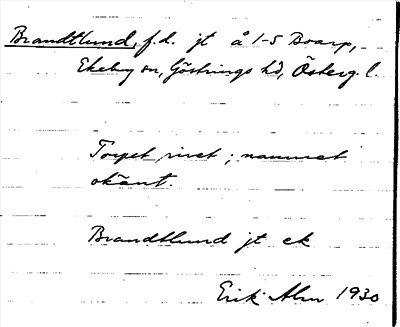 Brandtlund, f.d. jt å 1-5 Boarp,
Ekeby sn, Göstrings hd, Österg. l.
Torpet rivet; namnet
okänt.
Brandtlund jt ek
Erik Alm 1930